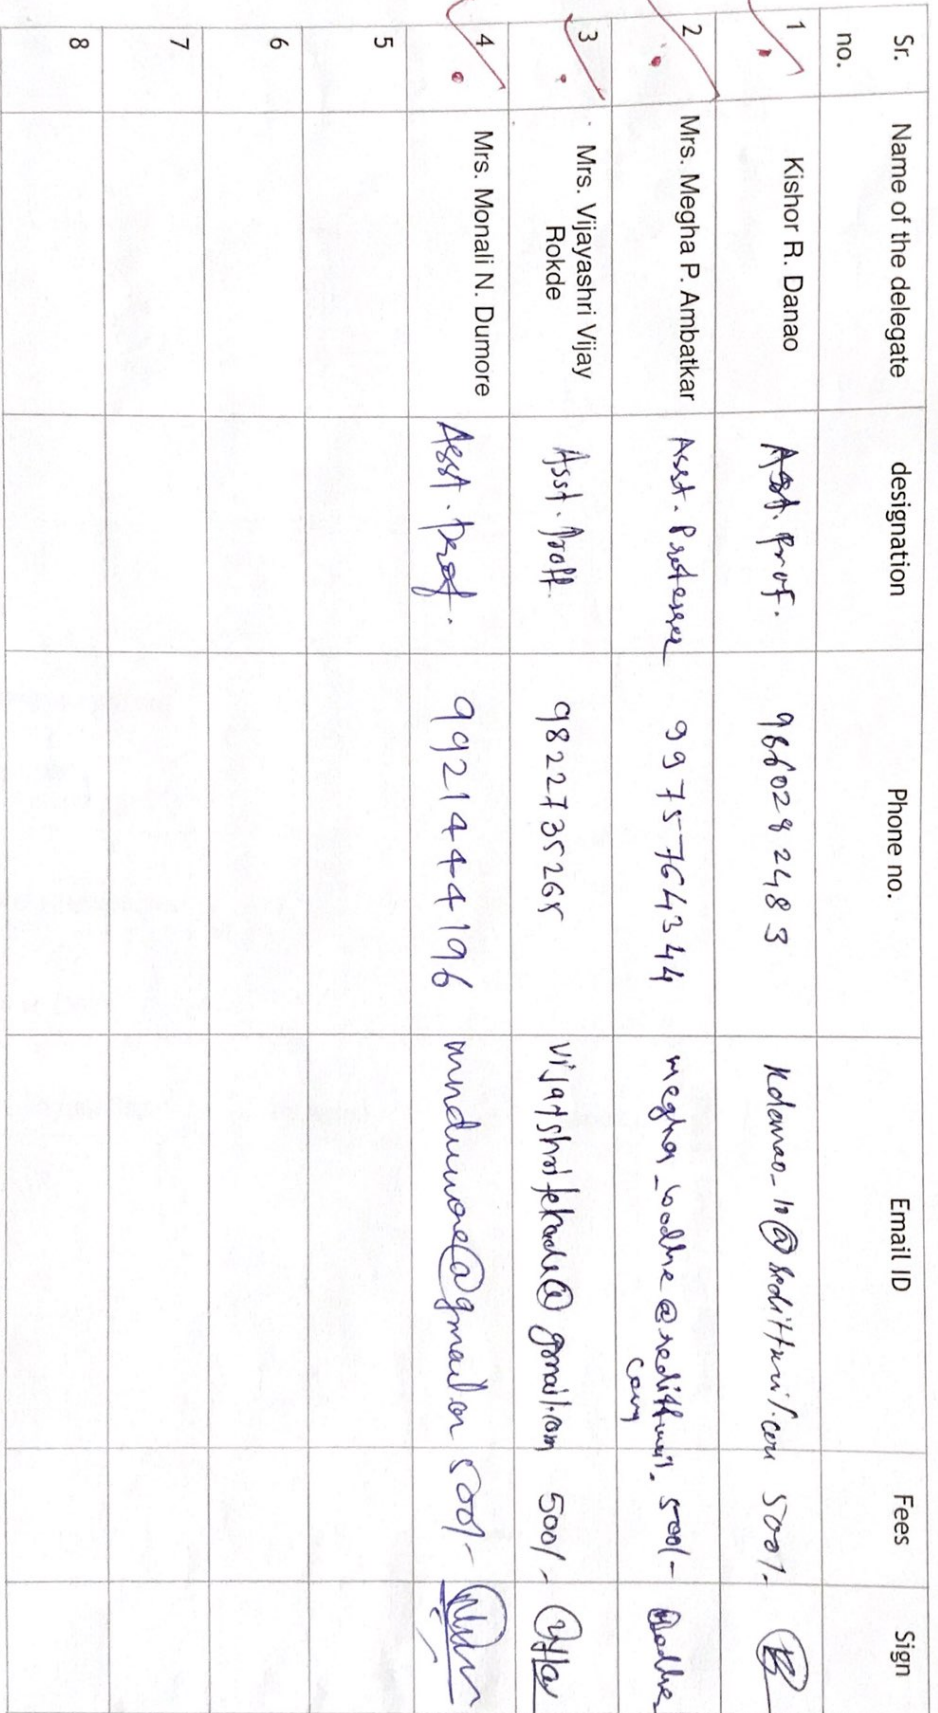 Sr. no. Name of the delegate designation Phone no. Email ID Fees Sign
1 Kishor R. Danao Asst. Prof. 9660282483 Kdanao_in@rediffmail.com 500/-
2 Mrs. Megha P. Ambatkar Asst. Professor 9975764344 megha_bodhe@rediffmail.com 500/- Bodhe
3 Mrs. Vijayashri Vijay Rokde Asst. Proff. 9822735265 500/-
4 Mrs. Monali N. Dumore Asst. Prof. 9921444196 mndumore@gmail.com 500/-
5
6
7
8